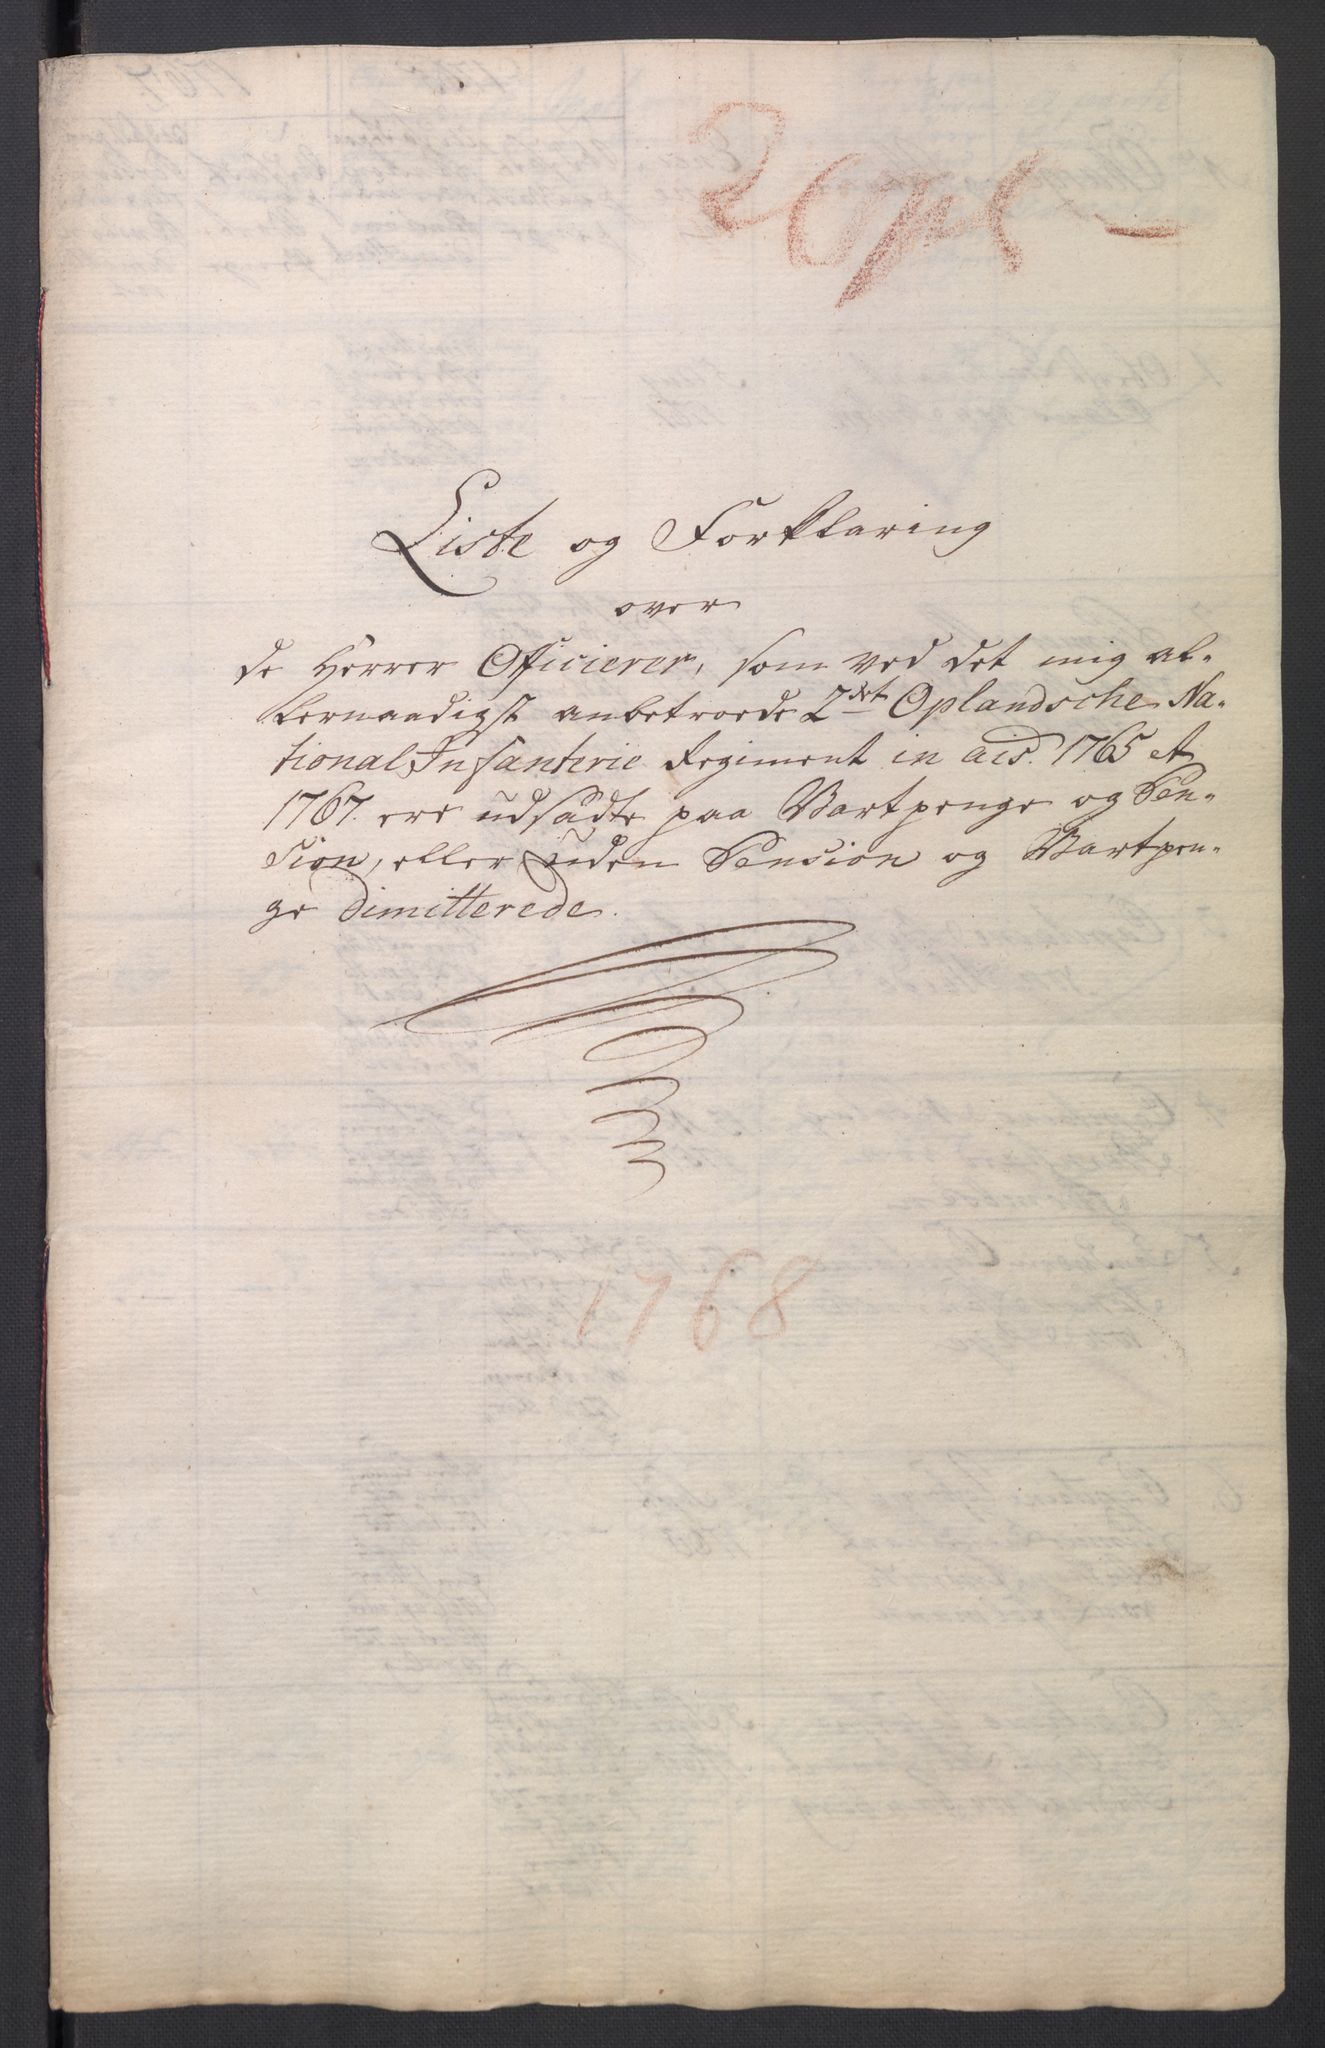 2 Opl –
Liste og Forklaring
over
de Herrer Officierer, som ved det mig al-
lernaadigst anbetroede 2det Oplandsche Na-
tional Infanterie Regiment in ais. 1765 et
1767. ere udsadte paa Vartpenge og Pen-
sion, eller uden Pension og Vartpen-
ge dimitterede.
1768